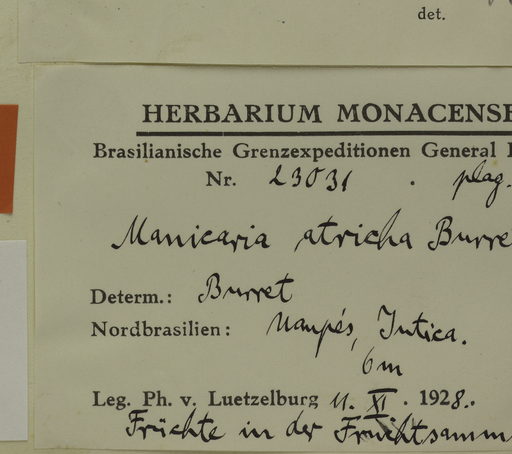 det.
HERBARIUM MONACENSE
Brasilianische Grenzexpeditionen General
Nr. 23031 . plag.
Manicaria atricha Burre
Determ.: Burret
Nordbrasilien: Uaupés, Jutica.
6m
Leg. Ph. v. Luetzelburg 11. XI . 1928.
Früchte in der Fruchtsamm